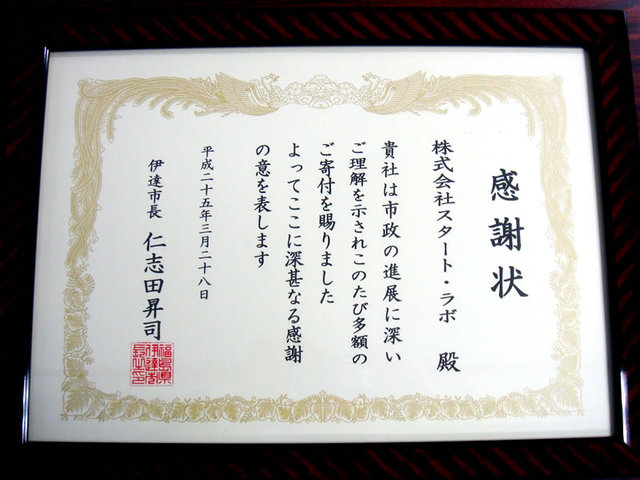 感謝状
株式会社スタート・ラボ 殿
貴社は市政の進展に深い
ご理解を示されこのたび多額の
ご寄付を賜りました
よってここに深甚なる感謝
の意を表します
平成二十五年三月二十八日
伊達市長 仁志田昇司
福島県
伊達市
長之印